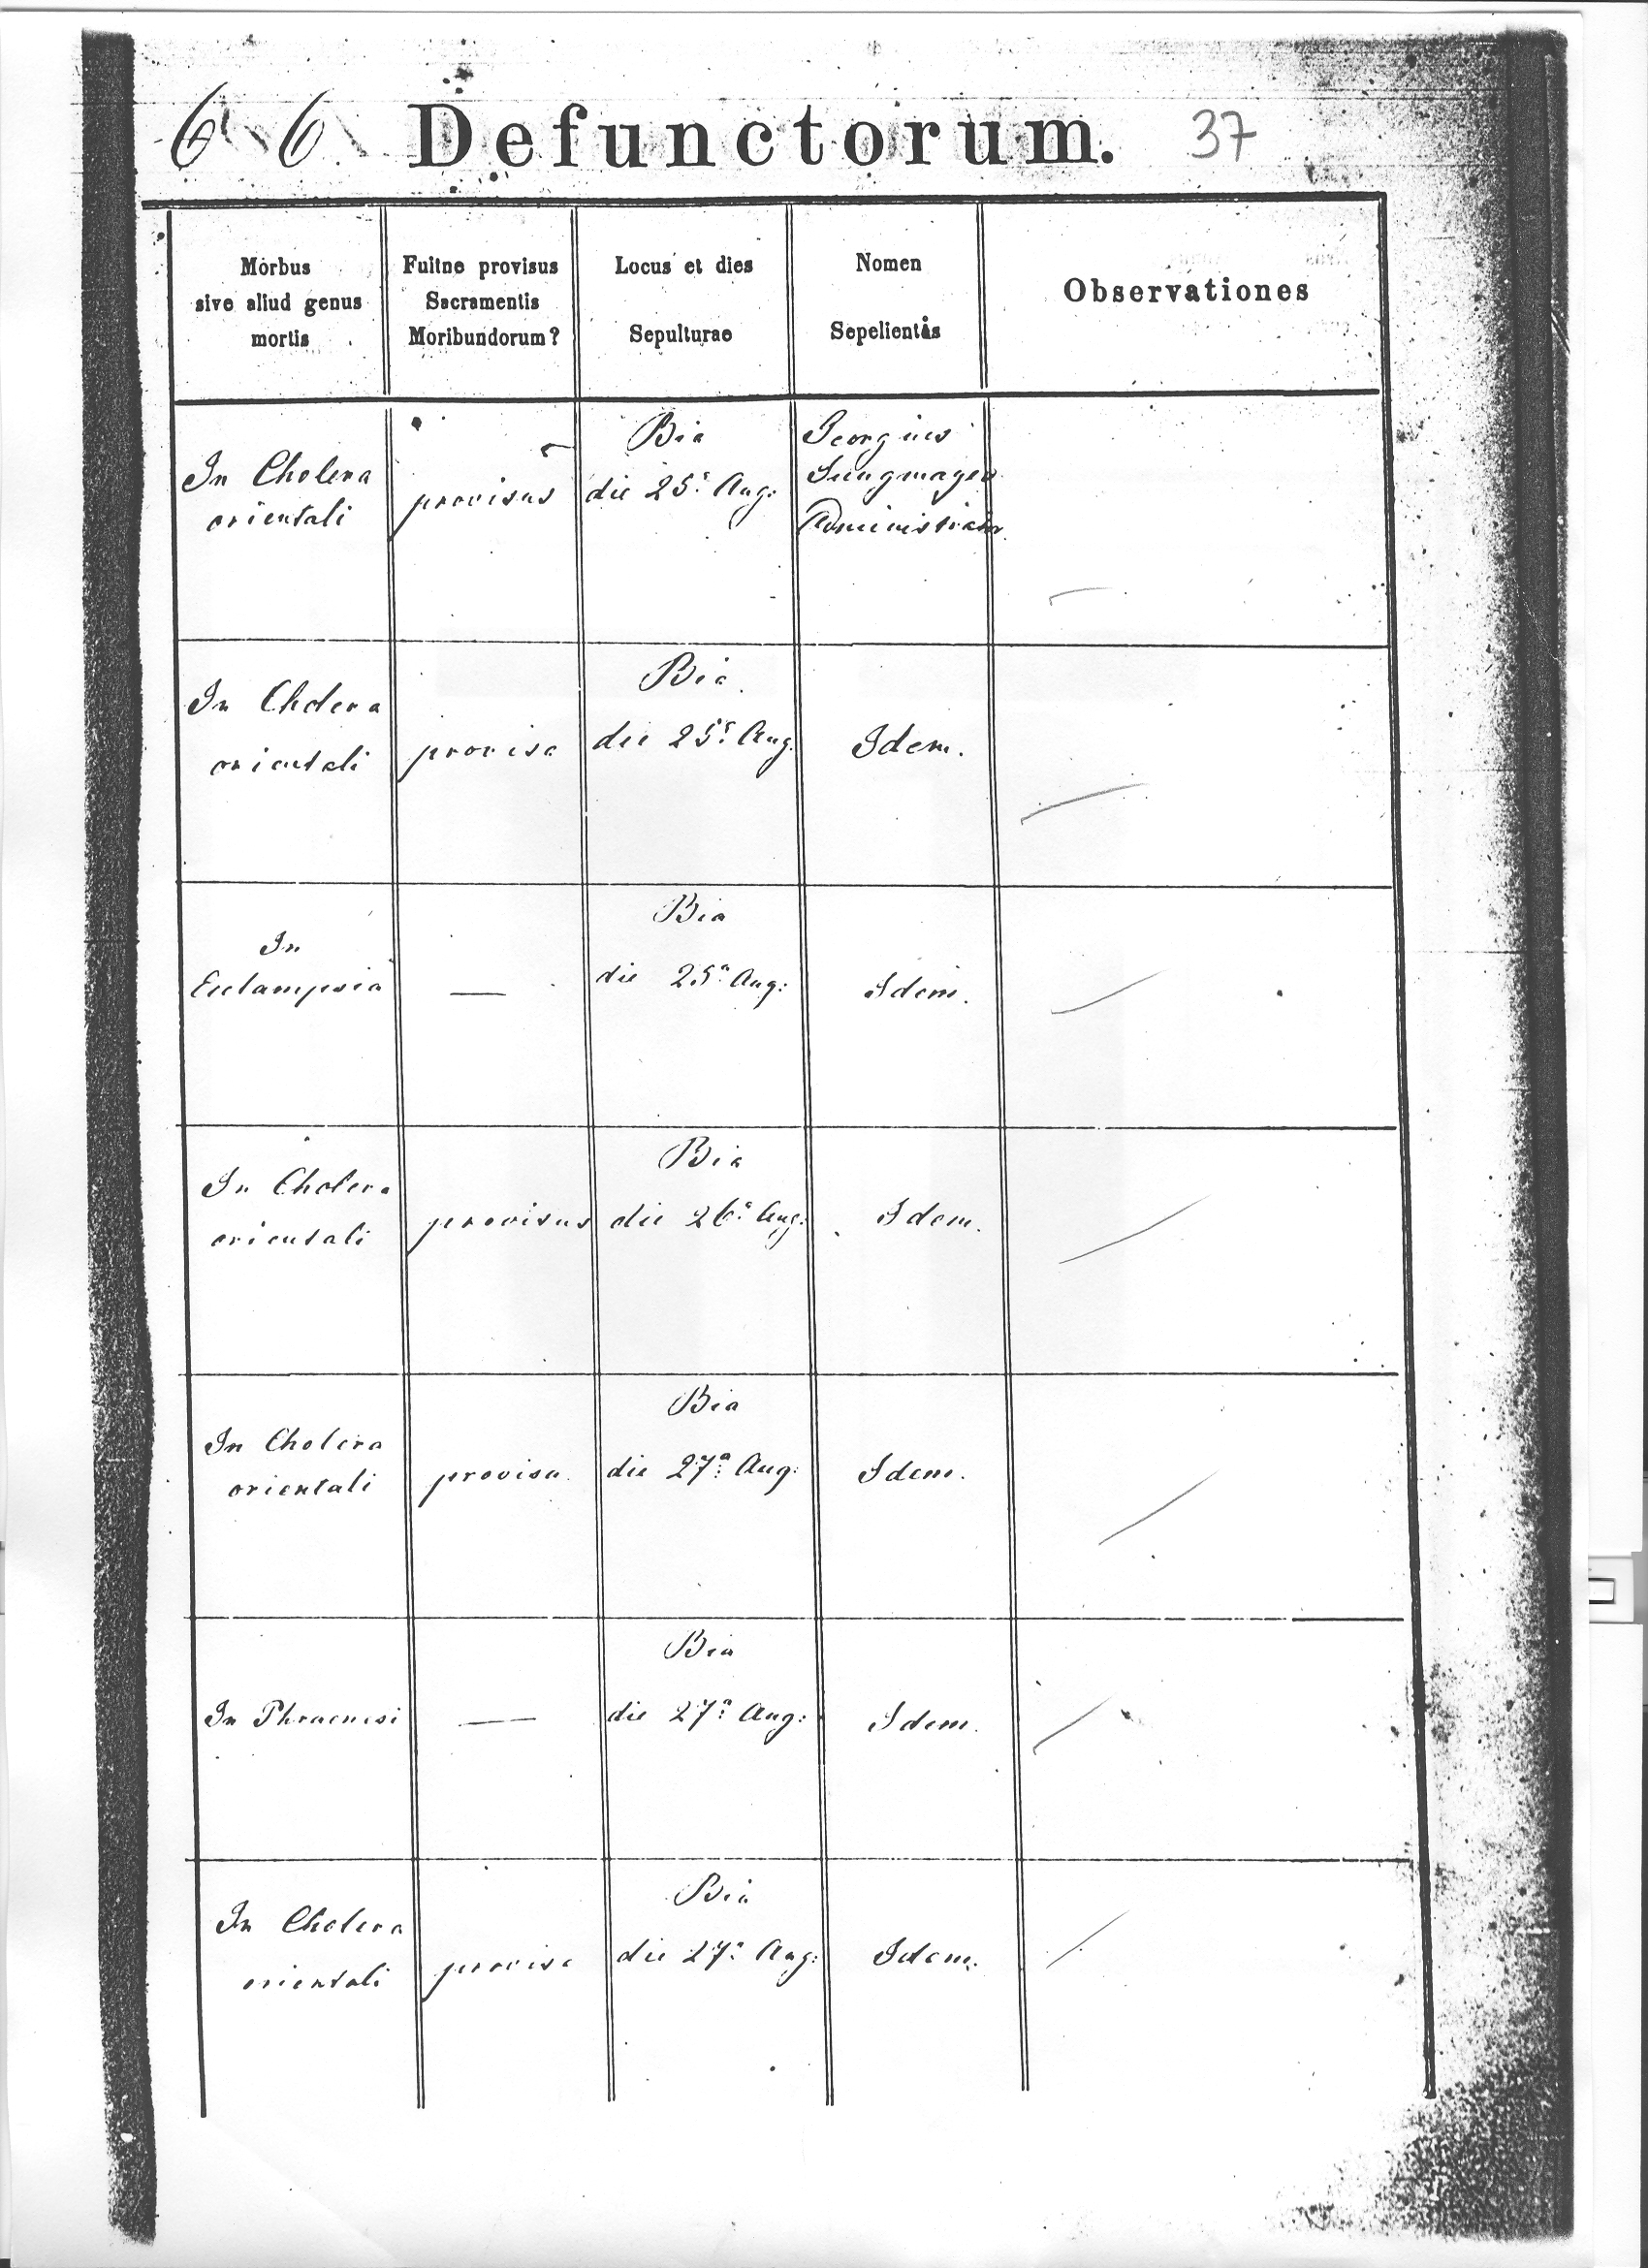 66 Defunctorum. 37
Morbus
sive aliud genus
mortis
Fuitne provisus
Sacramentis
Moribundorum?
Locus et dies
Sepulturae
Nomen
Sepelientis
Observationes
In Cholera
orientali
provisus
Bia
die 25ª Aug:
Georgius
Jungmayer
Administrator
In Cholera
orientali
provisa
Bia
die 25ª Aug.
Idem.
In
Eclampsia
—
Bia
die 25ª Aug:
Idem.
In Cholera
orientali
provisus
Bia
die 26ª Aug:
Idem.
In Cholera
orientali
provisa
Bia
die 27ª Aug:
Idem.
In Phraenesi
—
Bia
die 27ª Aug:
Idem.
In Cholera
orientali
provisa
Bia
die 27ª Aug:
Idem.